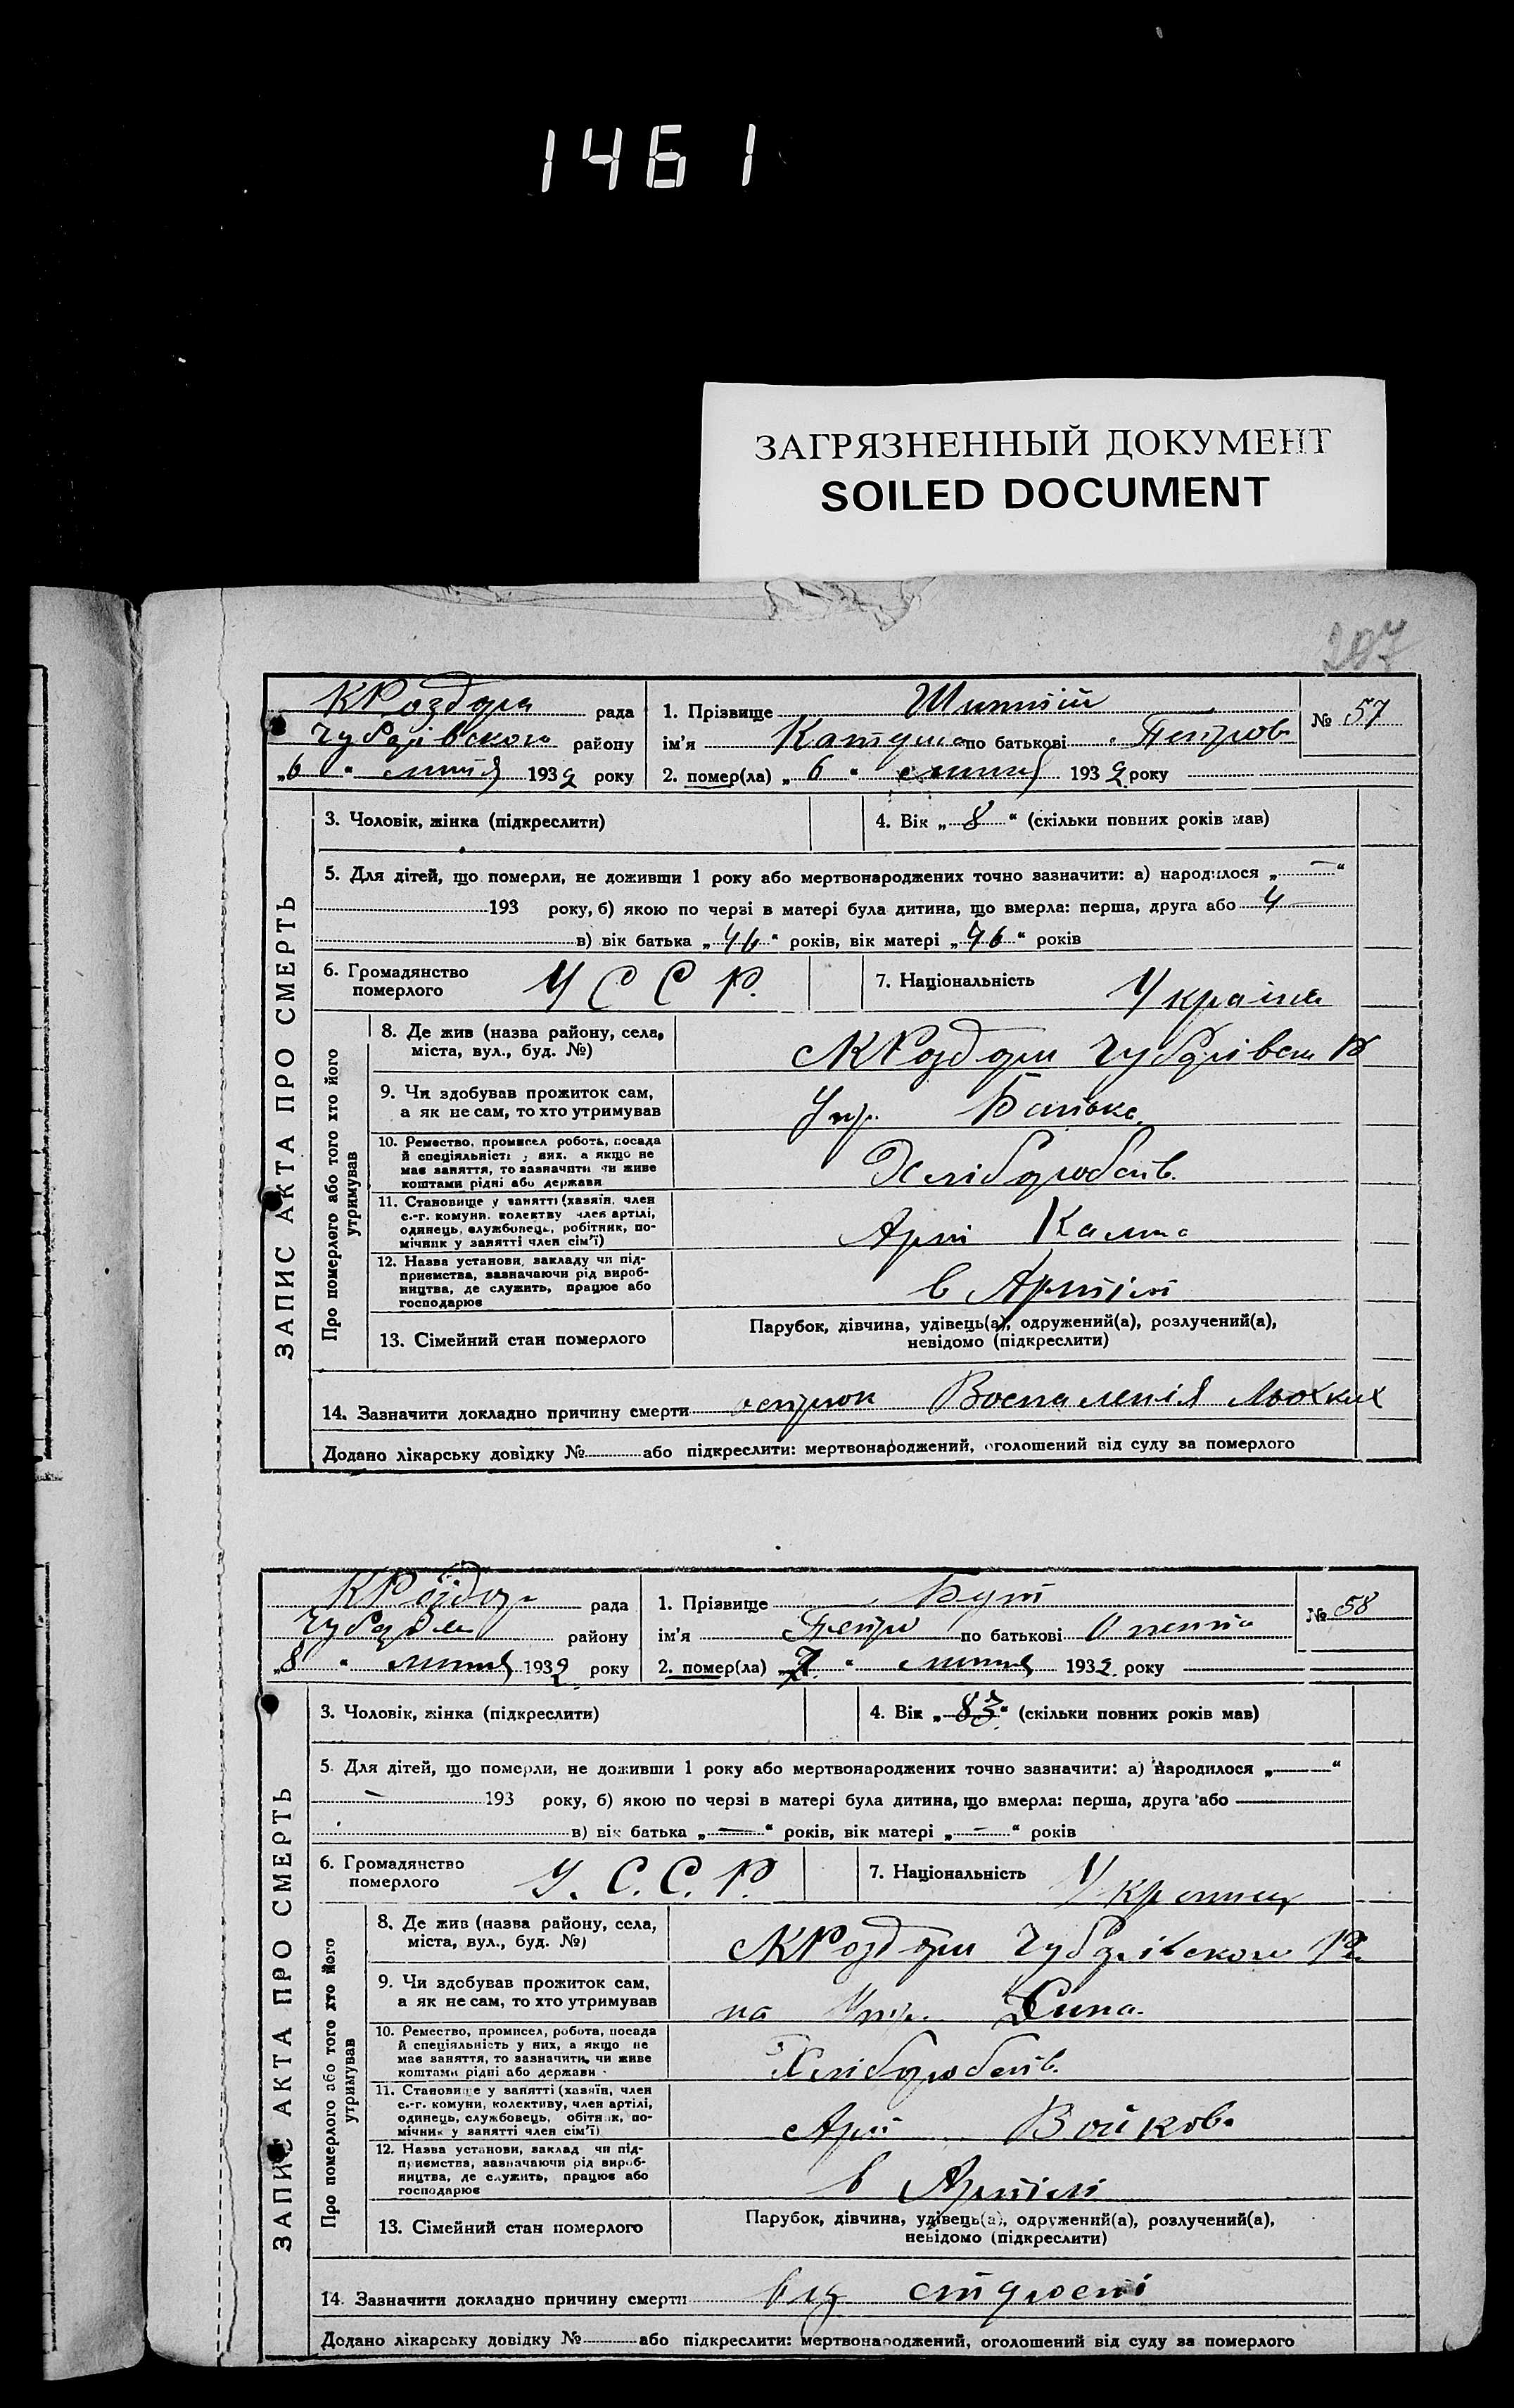 1461
ЗАГРЯЗНЕННЫЙ ДОКУМЕНТ
SOILED DOCUMENT
207
КРоздори рада
1. Прізвище
№ 57
району
ім'я по батькові Петров
„6“ липня 1932 року
2. помер(ла) „6“ липня 1932 року
ЗАПИС АКТА ПРО СМЕРТЬ
3. Чоловік, жінка (підкреслити)
4. Вік „8“ (скільки повних років мав)
5. Для дітей, що померли, не доживши 1 року або мертвонароджених точно зазначити: а) народилося „—“
193 року, б) якою по черзі в матері була дитина, що вмерла: перша, друга або 4
в) вік батька „46“ років, вік матері „46“ років
6. Громадянство
померлого
УССР.
7. Національність
Україн
Про померлого або того хто його
утримував
8. Де жив (назва району, села,
міста, вул., буд. №)
МКРоздори Чубарівськ Р
9. Чи здобував прожиток сам,
а як не сам, то хто утримував
Утр. Батька
10. Ремество, промисел робота, посада
й спеціяльність у них, а якщо не
має заняття, то зазначити чи живе
коштами рідні або держави
Хліборобств.
11. Становище у занятті (хазяїн, член
с.-г. комуни, колективу член артілі,
одинець, службовець, робітник, по-
мічник у занятті член сім'ї)
Арт
12. Назва установи, закладу чи під-
приємства, зазначаючи рід вироб-
ництва, де служить, працює або
господарює
в Артілі
13. Сімейний стан померлого
Парубок, дівчина, удівець(а), одружений(а), розлучений(а),
невідомо (підкреслити)
14. Зазначити докладно причину смерти Воспаленія Льохких
Додано лікарську довідку № або підкреслити: мертвонароджений, оголошений від суду за померлого
КРоздор рада
1. Прізвище Бут
№ 58
району
ім'я Петро по батькові
„8“ липня 1932 року
2. помер(ла) „7“ липня 1932 року
ЗАПИС АКТА ПРО СМЕРТЬ
3. Чоловік, жінка (підкреслити)
4. Вік „83“ (скільки повних років мав)
5. Для дітей, що померли, не доживши 1 року або мертвонароджених точно зазначити: а) народилося „—“
— 193 року, б) якою по черзі в матері була дитина, що вмерла: перша, друга або —
в) вік батька „—“ років, вік матері „—“ років
6. Громадянство
померлого
У.С.С.Р.
7. Національність
Про померлого або того хто його
утримував
8. Де жив (назва району, села,
міста, вул., буд. №)
МКРоздори Чубарівського Р
9. Чи здобував прожиток сам,
а як не сам, то хто утримував
на Утр. Сина
10. Ремество, промисел, робота, посада
й спеціяльність у них, а якщо не
має заняття, то зазначити, чи живе
коштами рідні або держави
Хліборобств.
11. Становище у занятті (хазяїн, член
с.-г. комуни, колективу, член артілі,
одинець, службовець, робітник, по-
мічник у занятті член сім'ї)
Арт Войкова
12. Назва установи, заклад чи під-
приємства, зазначаючи рід вироб-
ництва, де служить, працює або
господарює
в Артілі
13. Сімейний стан померлого
Парубок, дівчина, удівець(а), одружений(а), розлучений(а),
невідомо (підкреслити)
14. Зазначити докладно причину смерти від старості
Додано лікарську довідку № або підкреслити: мертвонароджений, оголошений від суду за померлого